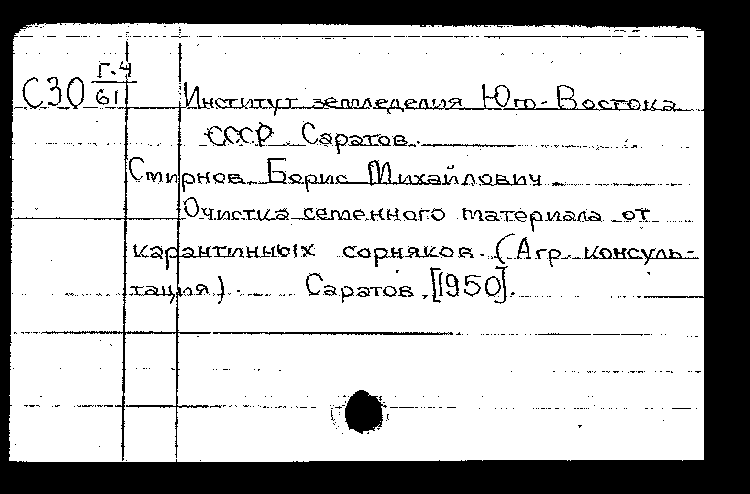 С30 Г.4/61
Институт земледелия Юго-Востока
СССР. Саратов.
Смирнов Борис Михайлович.
Очистка семенного материала от
карантинных сорняков. (Агр. консуль-
тация). Саратов, [1950].